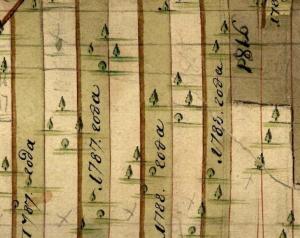 1787. года
1787. года
1788. года
1785. года
1816